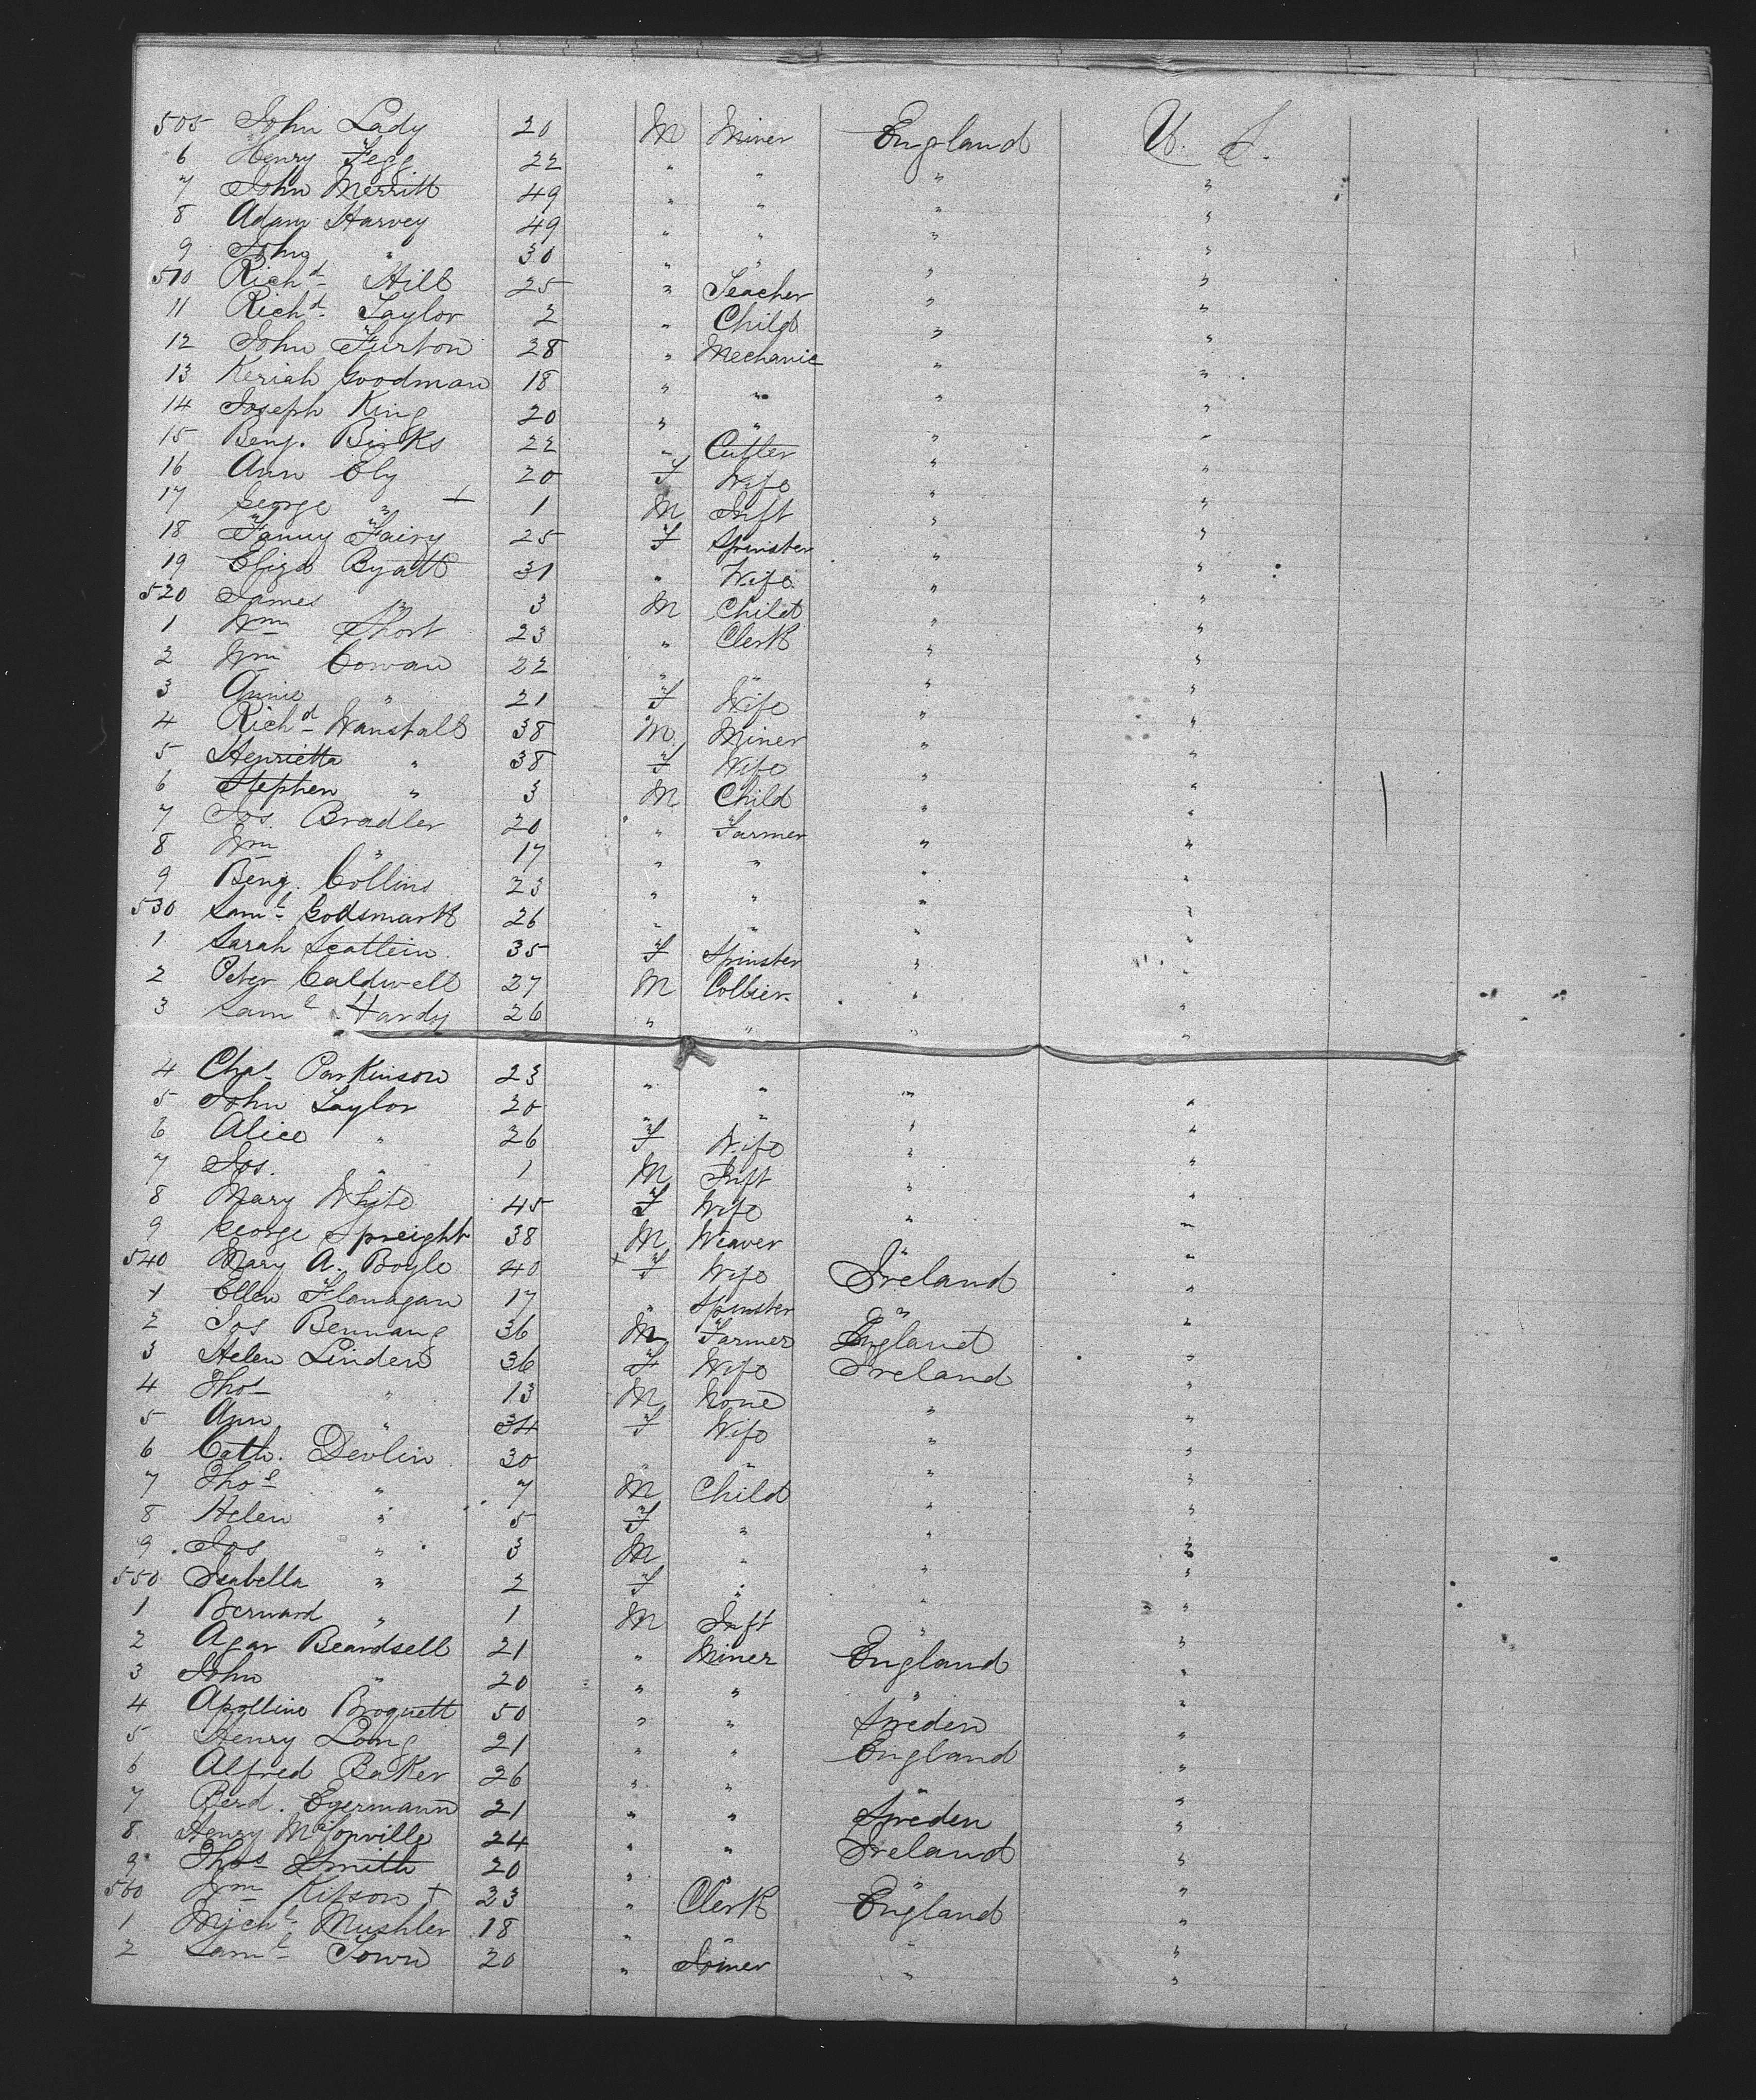 505 John Lady 20 M Miner England U. S.
6 Henry Fegg 22 " " " "
7 John Merritt 49 " " " "
8 Adam Harvey 49 " " " "
9 John " 30 " " " "
510 Richd Hill 25 " Teacher " "
11 Richd Taylor 2 " Child " "
12 John Furton 28 " Mechanic " "
13 Keriah Goodman 18 " " " "
14 Joseph King 20 " " " "
15 Benj. Birks 22 " Cutler " "
16 Ann Ely 20 F Wife " "
17 George " + 1 M Inft " "
18 Fanny Fairy 25 F Spinster " "
19 Eliza Byatt 31 " Wife " "
520 James " 3 M Child " "
1 Wm Short 23 " Clerk " "
2 Wm Cowan 22 " " " "
3 Annie " 21 F Wife " "
4 Richd Wanstall 38 M Miner " "
5 Henrietta " 38 F Wife " "
6 Stephen " 3 M Child " "
7 Jos. Bradler 20 " Farmer " "
8 Wm " 17 " " " "
9 Benj. Collins 23 " " " "
530 Saml Godsmark 26 " " " "
1 Sarah Scattein 35 F Spinster " "
2 Peter Caldwell 27 M Collier " "
3 Saml Hardy 26 " " " "
4 Chas Parkinson 23 " " " "
5 John Taylor 20 " " " "
6 Alice " 26 F Wife " "
7 Jos. " 1 M Inft " "
8 Mary Whyte 45 F Wife " "
9 George Spreight 38 M Weaver " "
540 Mary A. Boyle 40 + F Wife Ireland "
1 Ellen Flanagan 17 " Spinster " "
2 Jos Bennang 36 M Farmer England "
3 Helen Linden 36 F Wife Ireland "
4 Thos " 13 M None " "
5 Ann " 34 F Wife " "
6 Cath. Devlin 30 " " " "
7 Thos " 7 M Child " "
8 Helen " 5 F " " "
9 Jos " 3 M " " "
550 Isabella " 2 F " " "
1 Bernard " 1 M Inft " "
2 Agar Beardsell 21 " Miner England "
3 John " 20 " " " "
4 Apolline Broquett 50 " " Sweden "
5 Henry Long 21 " " England "
6 Alfred Baker 26 " " " "
7 Berd. Egermann 21 " " Sweden "
8 Henry McConville 24 " " Ireland "
9 Thos Smith 20 " " " "
560 Wm Kitson + 23 " Clerk England "
1 Michl Mushler 18 " " " "
2 Saml Town 20 " Joiner " "